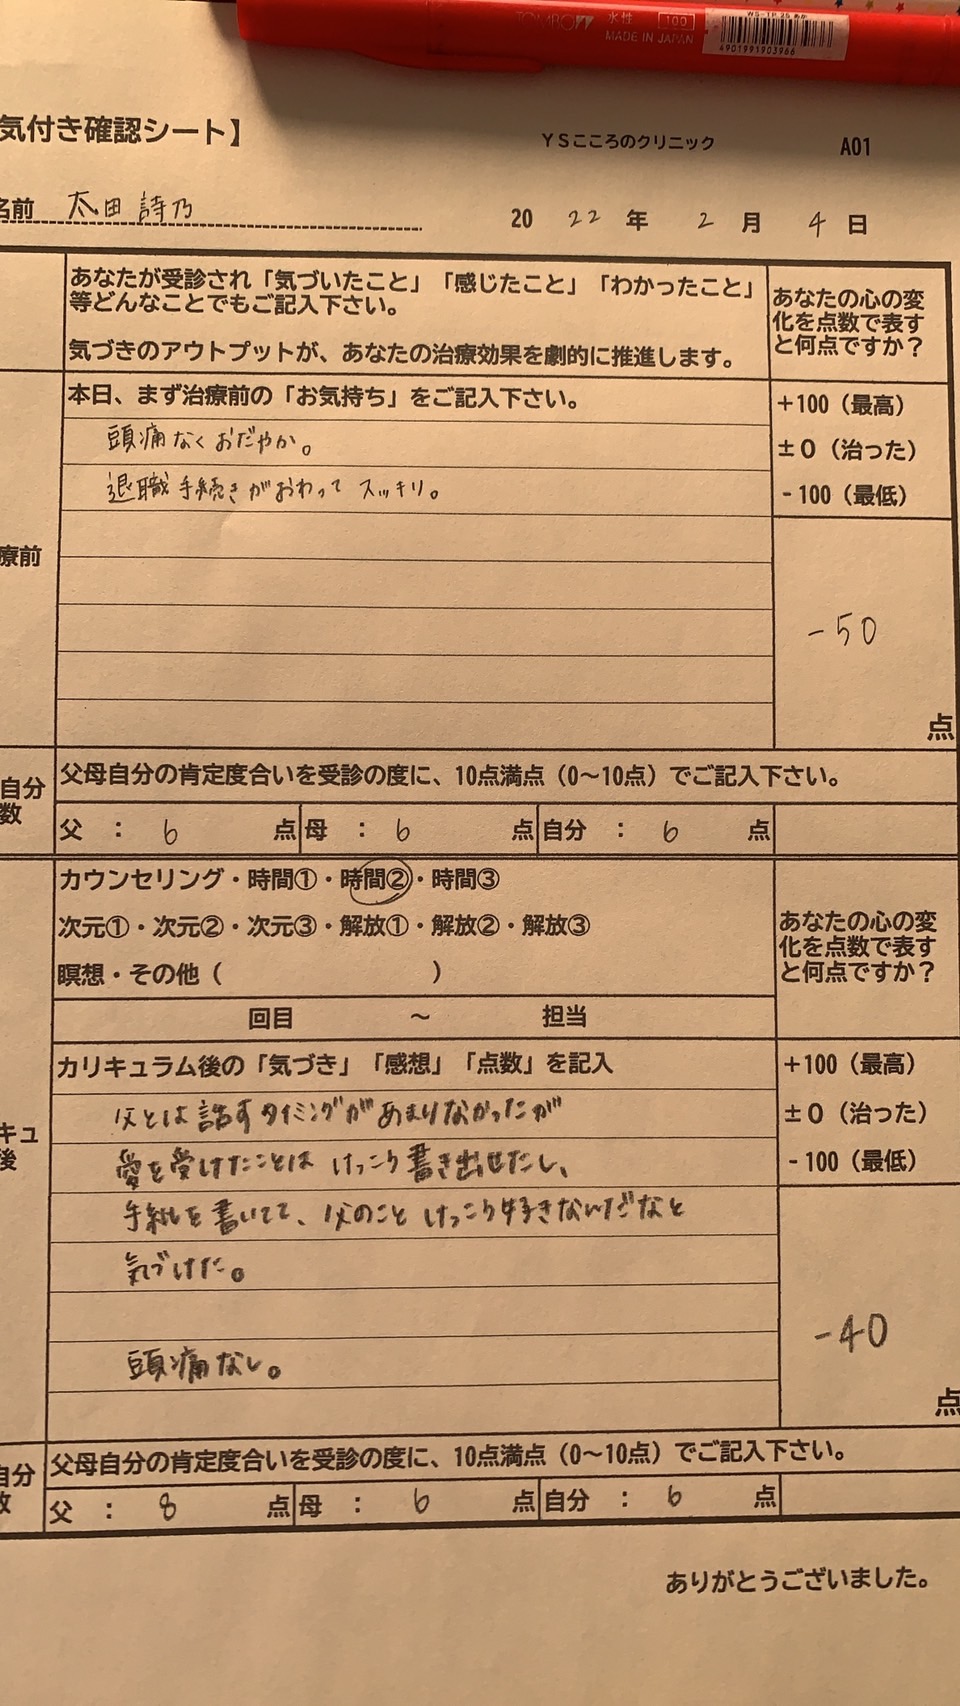 TOMBOW 水性 100
MADE IN JAPAN
WS-TP 25 あか
4901991903966
気付き確認シート】
YSこころのクリニック
A01
名前 太田 詩乃
20 22 年 2 月 4 日
あなたが受診され「気づいたこと」「感じたこと」「わかったこと」
等どんなことでもご記入下さい。
気づきのアウトプットが、あなたの治療効果を劇的に推進します。
あなたの心の変
化を点数で表す
と何点ですか？
本日、まず治療前の「お気持ち」をご記入下さい。
+100（最高）
±0（治った）
-100（最低）
頭痛なくおだやか。
退職手続きがおわってスッキリ。
療前
-50
点
自分
数
父母自分の肯定度合いを受診の度に、10点満点（0～10点）でご記入下さい。
父 ： 6 点 母 ： 6 点 自分 ： 6 点
カウンセリング・時間①・時間②・時間③
次元①・次元②・次元③・解放①・解放②・解放③
瞑想・その他（ ）
回目 ～ 担当
あなたの心の変
化を点数で表す
と何点ですか？
カリキュラム後の「気づき」「感想」「点数」を記入
+100（最高）
±0（治った）
-100（最低）
キュ
後
父とは話すタイミングがあまりなかったが
愛を受けたことはけっこう書き出せたし、
手紙を書いてて、父のことけっこう好きなんだなと
気づけた。
頭痛なし。
-40
点
自分
数
父母自分の肯定度合いを受診の度に、10点満点（0～10点）でご記入下さい。
父 ： 8 点 母 ： 6 点 自分 ： 6 点
ありがとうございました。